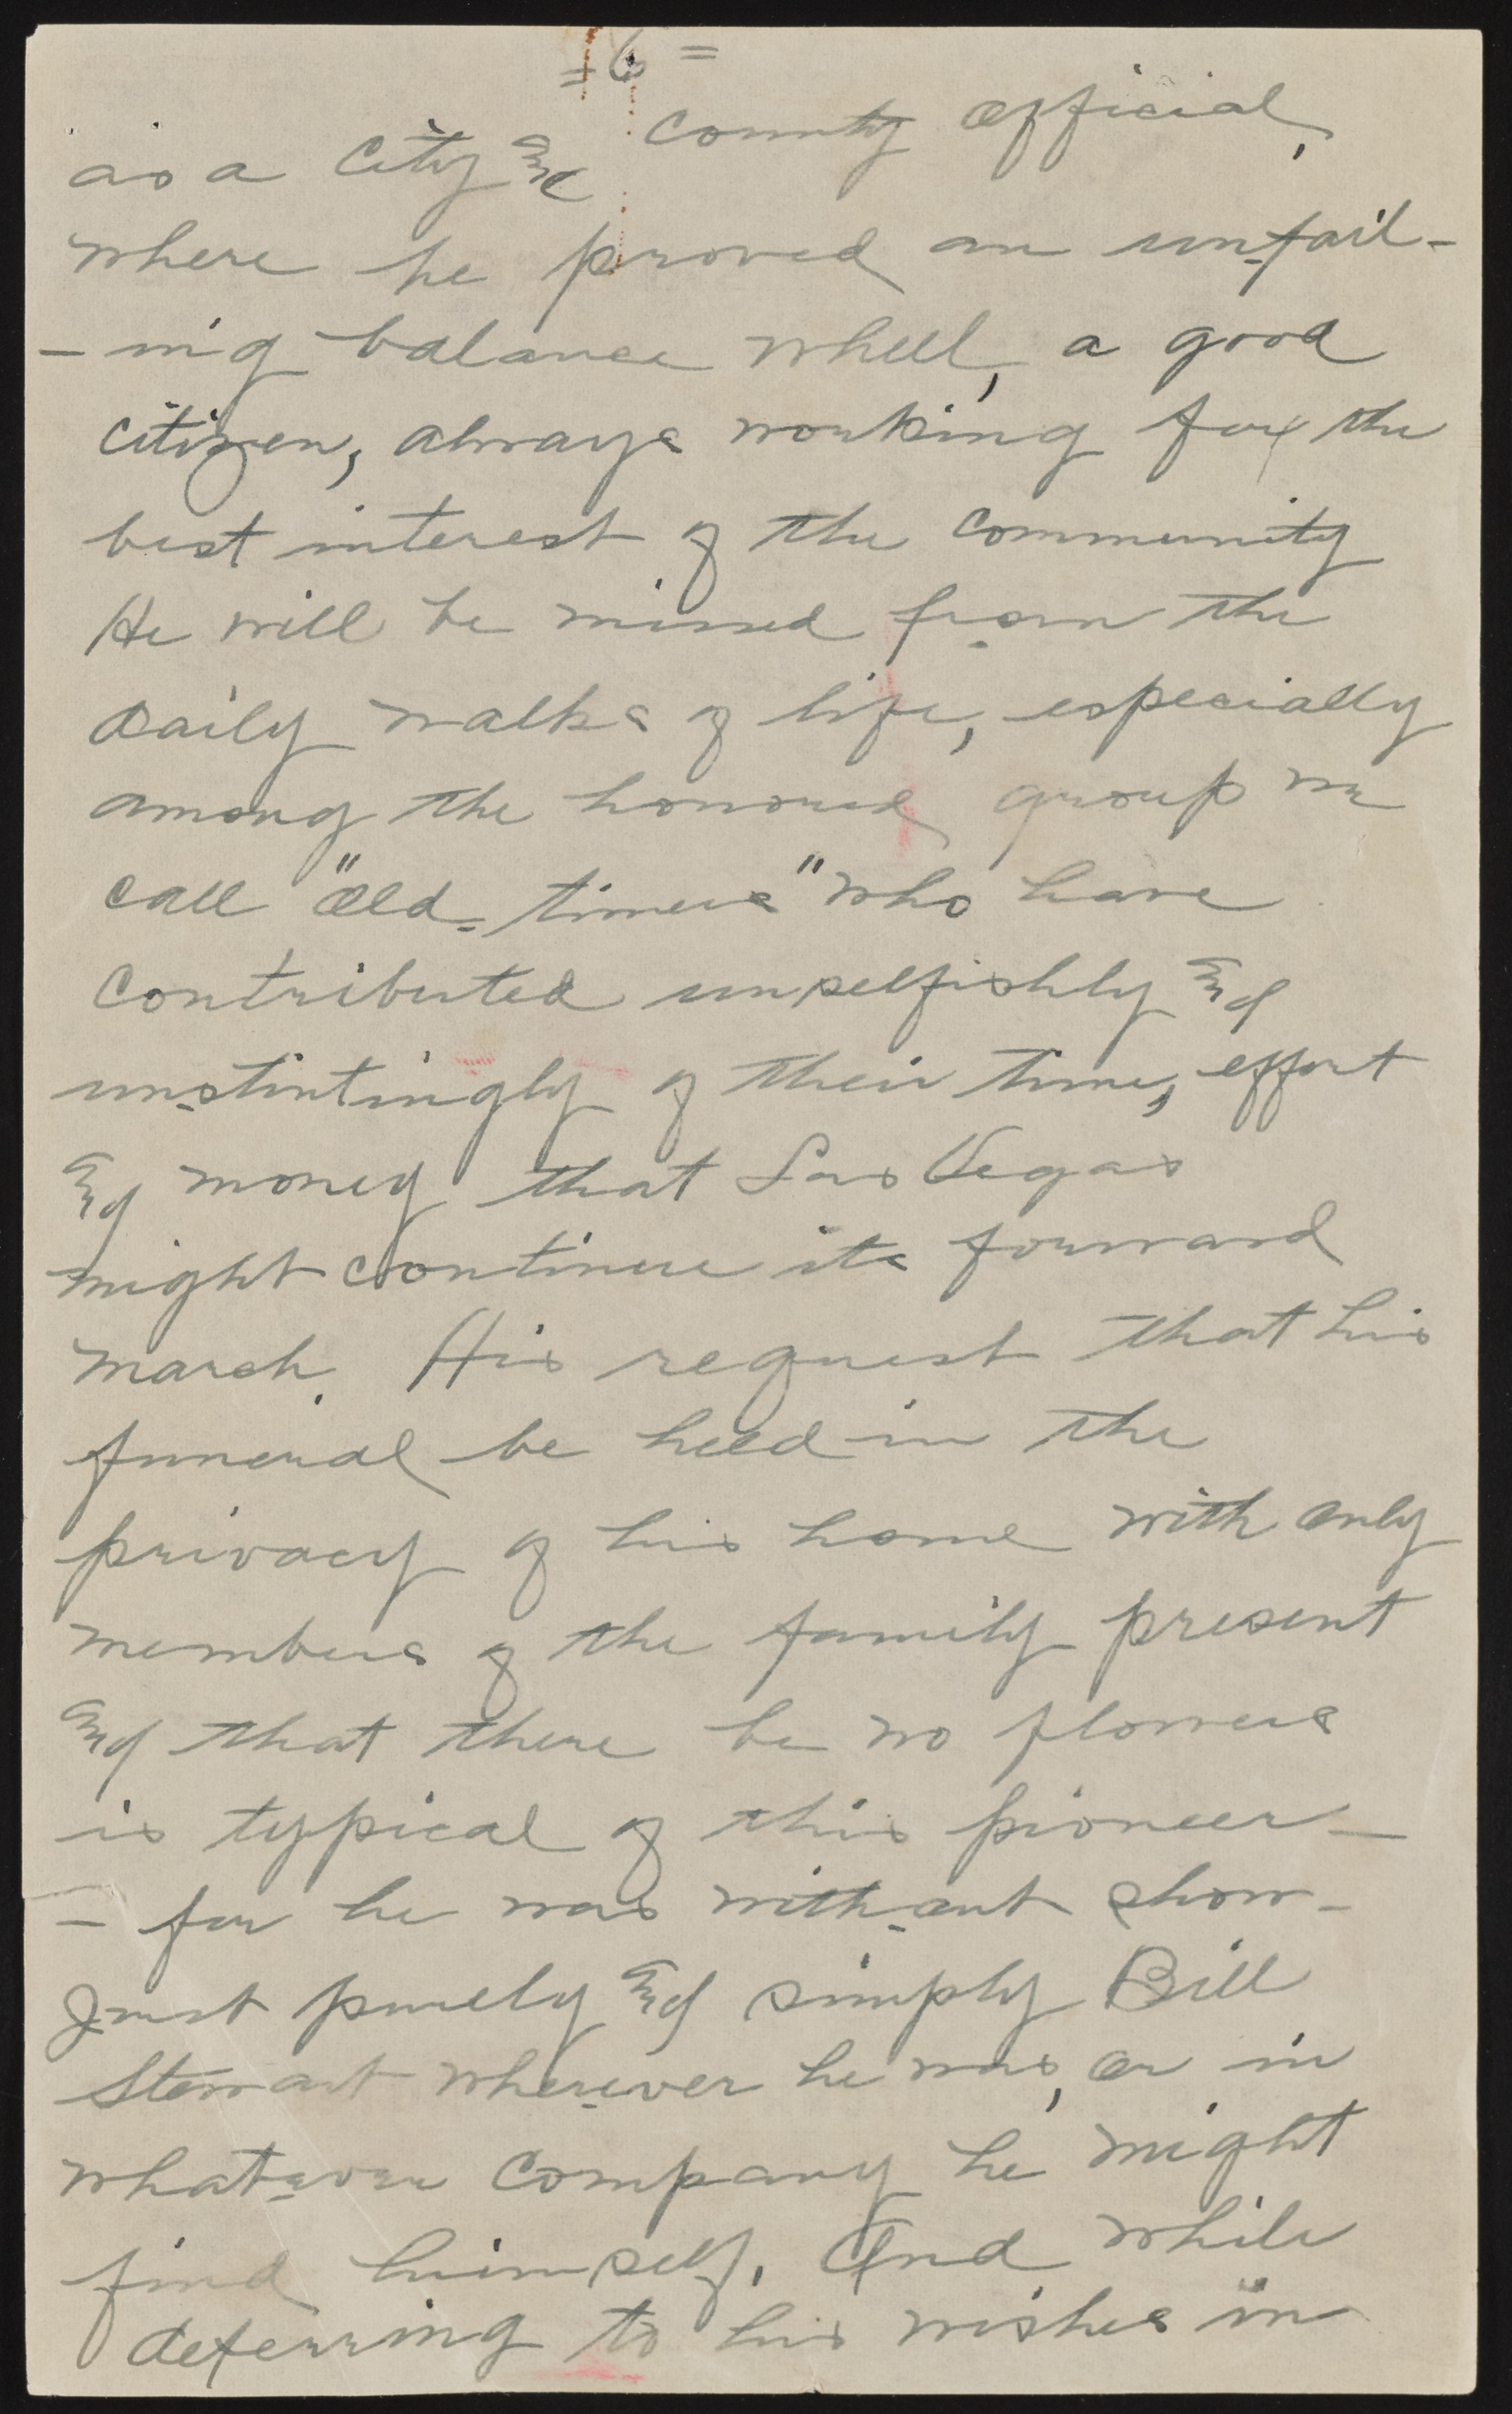 = 6 =
as a City and County Official,
where he proved an unfail-
- ing balance wheel, a good
citizen, always working for the
best interest of the community
He will be missed from the
daily walks of life, especially
among the honored group we
call "Old-timers" who have
contributed unselfishly and
unstintingly of their time, effort
and money that Las Vegas
might continue its forward
march. His request that his
funeral be held in the
privacy of his home with only
members of the family present
and that there be no flowers
is typical of this pioneer -
- for he was without show -
Just purely and simply Bill
Stewart wherever he was, or in
whatever company he might
find himself. And while
deferring to his wishes in